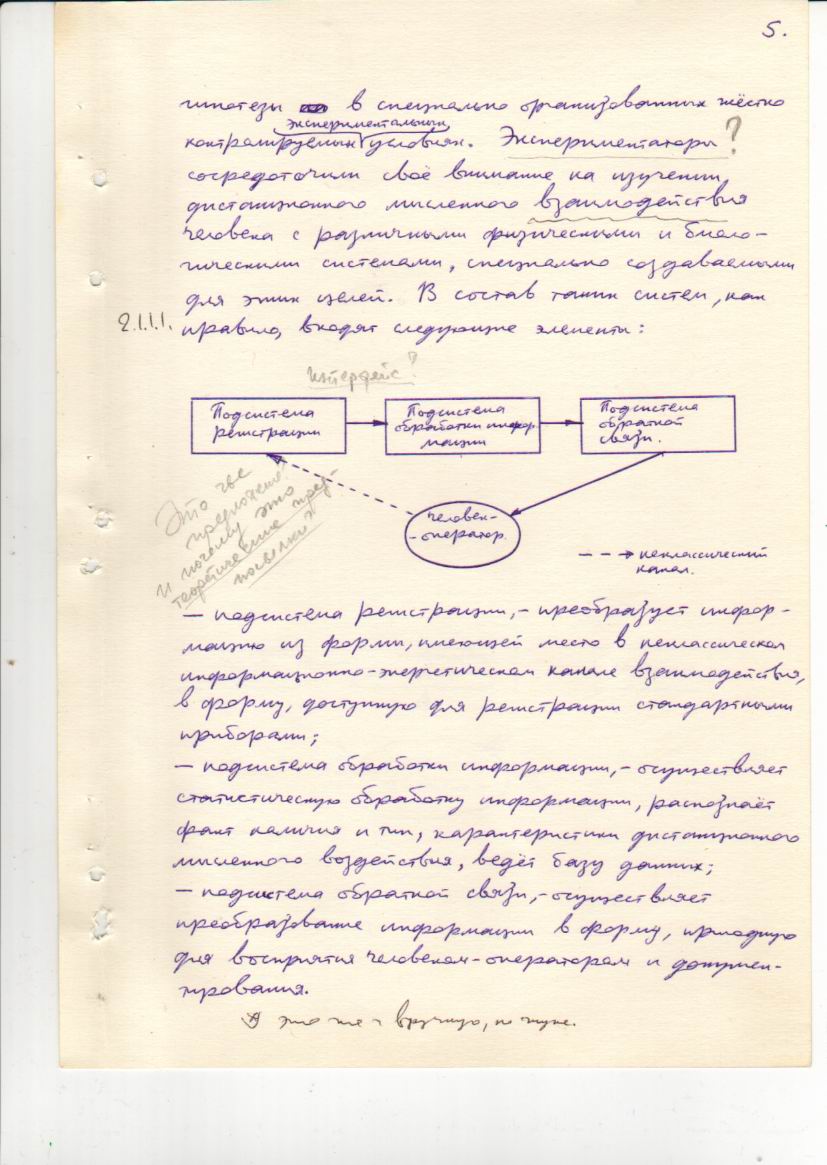 5.
гипотезы в специально организованных жёстко
экспериментальных
контролируемых условиях. Экспериментаторы ?
сосредоточили своё внимание на изучении
дистанционного мысленного взаимодействия
человека с различными физическими и биоло-
гическими системами, специально создаваемыми
для этих целей. В состав таких систем, как
2.1.1.1. правило, входят следующие элементы:
интерфейс?
Подсистема
регистрации
Подсистема
обработки инфор-
мации
Подсистема
обратной
связи.
Это где
предложено?
и почему это
теоретические пред-
посылки?
человек-
-оператор.
неклассический
канал.
— подсистема регистрации, - преобразует инфор-
мацию из формы, имеющей место в неклассическом
информационно-энергетическом канале взаимодействия,
в форму, доступную для регистрации стандартными
приборами;
— подсистема обработки информации, - осуществляет
статистическую обработку информации, распознаёт
факт наличия и тип, характеристики дистанционного
мысленного воздействия, ведёт базу данных;
— подсистема обратной связи, - осуществляет
преобразование информации в форму, пригодную
для восприятия человеком-оператором и докумен-
тирования.
это вручную,